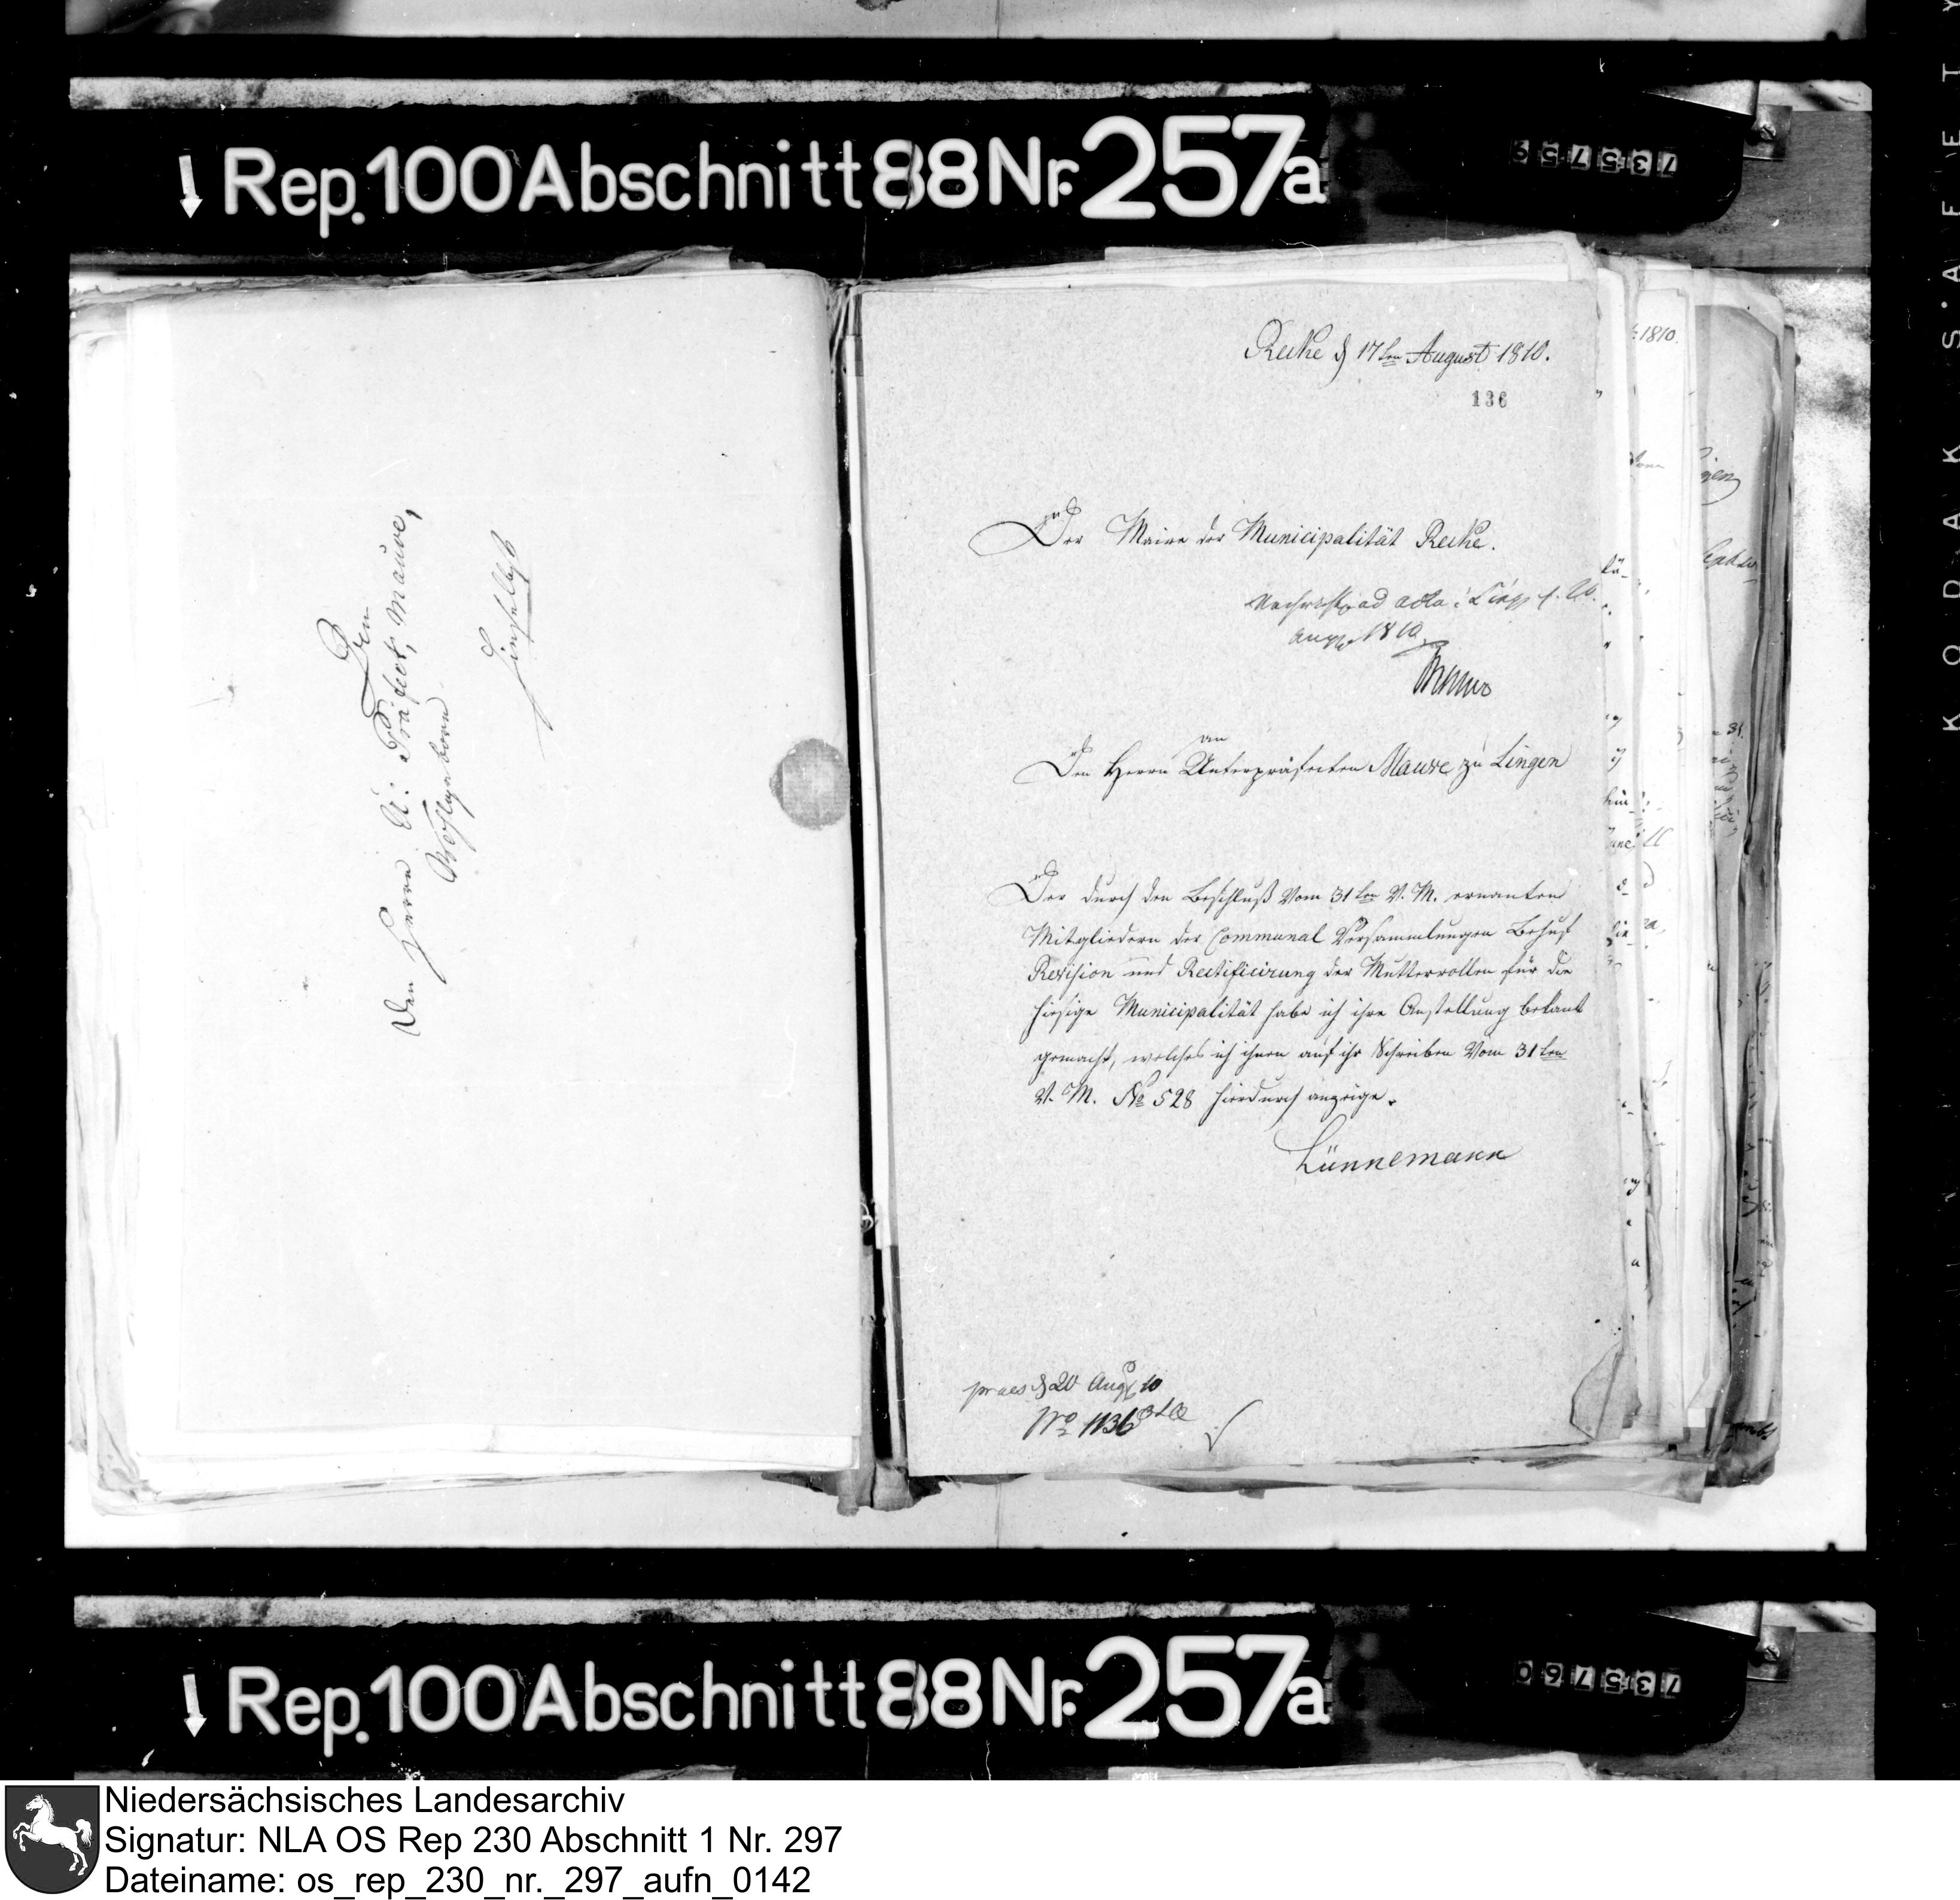 Rep. 100 Abschnitt 88 Nr. 257a
735759
Den
Herrn U: Präfect, Mauve,
Wohlgeboren
Hieselbst
Recke d 17ten August 1810.
136
Der Maire der Municipalität Recke.
ad acta
Aug 1810
Mauve
an
Den Herrn Unterpräfecten Mauve zu Lingen
Der durch den Beschluß vom 31ten v. M. ernanten
Mitgliedern der Communal Versammlungen Behuf
Revision und Rectificirung der Mutterrollen für die
hiesige Municipalität habe ich ihre Anstellung bekant
gemacht, welches ich ihnen auf ihr Schreiben vom 31ten
v. M. No 528 hierdurch anzeige.
Lünnemann
praes d 20 Aug 10
No 1136
1810.
Rep. 100 Abschnitt 88 Nr. 257a
735760
KODAK SAFETY
Niedersächsisches Landesarchiv
Signatur: NLA OS Rep 230 Abschnitt 1 Nr. 297
Dateiname: os_rep_230_nr._297_aufn_0142